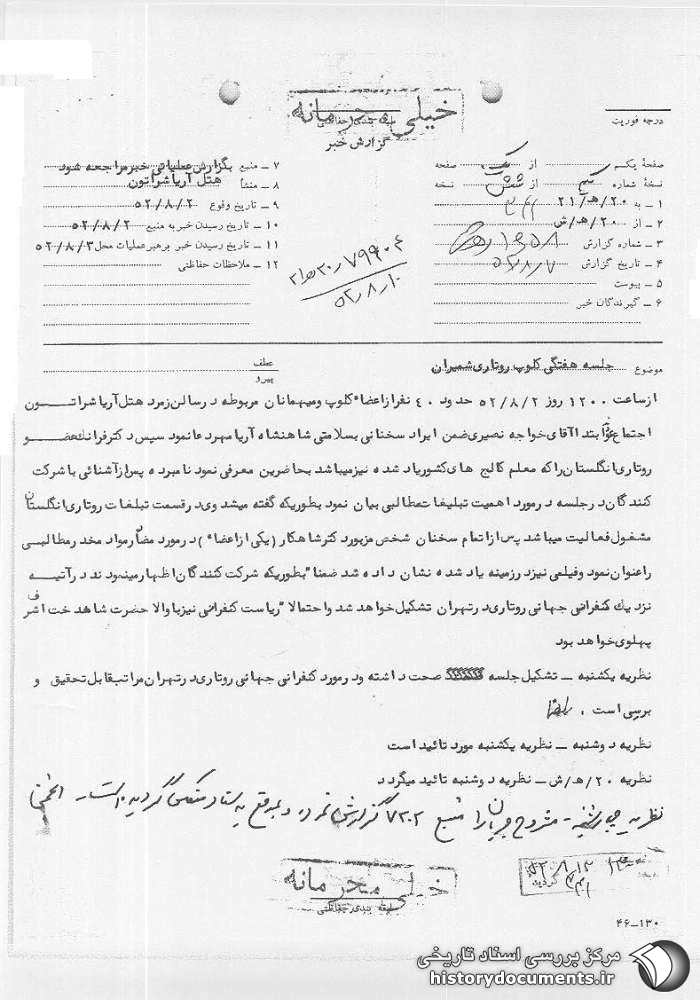 خیلی محرمانه
طبقه بندی حفاظتی
گزارش خبر
درجه فوریت
صفحهٔ یکم از یک صفحه
نسخهٔ شماره از شش نسخه
۱ ـ به ۲۰/هـ/۲۱
۲ ـ از ۲۰/هـ/ش
۳ ـ شماره گزارش
۴ ـ تاریخ گزارش ۵۲/۸/۷
۵ ـ پیوست
۶ ـ گیرندگان خبر
۷ ـ منبع بگزارش عملیاتی خبر مراجعه شود
۸ ـ منشأ هتل آریا شراتون
۹ ـ تاریخ وقوع ۵۲/۸/۲
۱۰ ـ تاریخ رسیدن خبر به منبع ۵۲/۸/۲
۱۱ ـ تاریخ رسیدن خبر برهبر عملیات محل ۵۲/۸/۳
۱۲ ـ ملاحظات حفاظتی
۵۲٫۸٫۱۰
موضوع جلسه هفتگی کلوپ روتاری شمیران
عطف
پیرو
از ساعت ۱۲۰۰ روز ۵۲/۸/۲ حدود ۴۰ نفر از اعضاء کلوپ و میهمانان مربوطه در سالن زمرد هتل آریا شراتون
اجتماع ابتدا آقای خواجه نصیری ضمن ایراد سخنانی بسلامتی شاهنشاه آریامهر دعا نمود سپس دکتر فرانک عضو
روتاری انگلستان را که معلم کالج های کشور یاد شده نیز میباشد بحاضرین معرفی نمود نامبرده پس از آشنائی با شرکت
کنندگان در جلسه در مورد اهمیت تبلیغات مطالبی بیان نمود بطوریکه گفته میشد وی در قسمت تبلغات روتاری انگلستان
مشغول فعالیت میباشد پس از اتمام سخنان شخص مزبور دکتر شاهکار (یکی از اعضاء) در مورد مضار مواد مخدر مطالبی
را عنوان نمود و فیلمی نیز در زمینه یاد شده نشان داده شد ضمنا" بطوریکه شرکت کنندگان اظهار مینمودند در آتیه
نزدیک کنفرانس جهانی روتاری در تهران تشکیل خواهد شد و احتمالا" ریاست کنفرانس نیز با والا حضرت شاهدخت اشرف
پهلوی خواهد بود
نظریه یکشنبه ـ تشکیل جلسه صحت داشته و در مورد کنفرانس جهانی روتاری در تهران مراتب قابل تحقیق و
بررسی است .
نظریه دوشنبه ـ نظریه یکشنبه مورد تائید است
نظریه ۲۰/هـ/ش ـ نظریه دوشنبه تائید میگردد
نظریه چهارشنبه ـ مشروح جریان را منبع ۷۳۰۲ گزارش نموده و بموقع به ستاد منعکس گردیده است.
خیلی محرمانه
طبقه بندی حفاظتی
۴۶ـ۱۳۰
مرکز بررسی اسناد تاریخی
historydocuments.ir